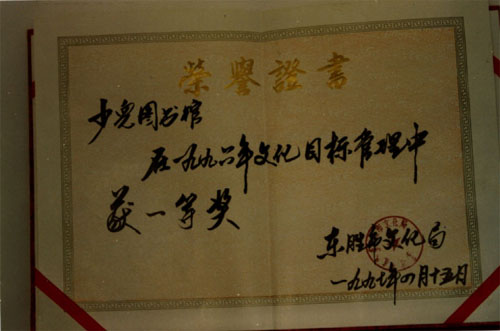 榮譽證書
少児图书馆
在一九九六年文化目标管理中
获一等奖
东胜市文化局
一九九七年四月十五日